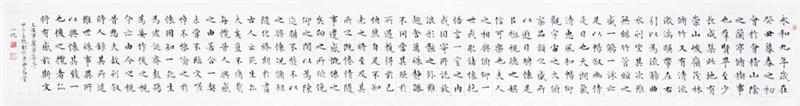 永和九年歲在
癸丑暮春之初
會于會稽山陰
之蘭亭脩禊事
也羣賢畢至少
長咸集此地有
崇山峻嶺茂林
脩竹又有清流
激湍暎帶左右
引以為流觴曲
水列坐其次雖
無絲竹管絃之
盛一觴一詠亦
足以暢敘幽情
是日也天朗氣
清惠風和暢仰
觀宇宙之大俯
察品類之盛所
以遊目騁懷足
以極視聽之娛
信可樂也夫人
之相與俯仰一
世或取諸懷抱
悟言一室之內
或因寄所託放
浪形骸之外雖
趣舍萬殊靜躁
不同當其欣於
所遇暫得於己
快然自足不知
老之將至及其
所之既惓情隨
事遷感慨係之
矣向之所欣俛
仰之間以為陳
迹猶不能不以
之興懷況脩短
隨化終期於盡
古人云死生亦
大矣豈不痛哉
每攬昔人興感
之由若合一契
未嘗不臨文嗟
悼不能喻之於
懷固知一死生
為虛誕齊彭殤
為妄作後之視
今亦由今之視
昔悲夫故列敘
時人錄其所述
雖世殊事異所
以興懷其致一
也後之攬者亦
將有感於斯文